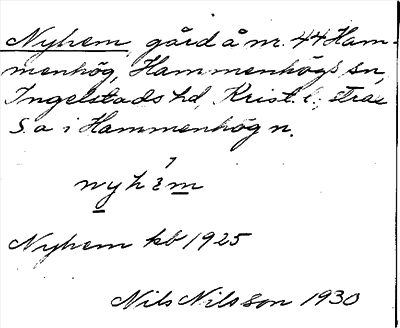 Nyhem, gård å nr. 44 Ham-
menhög, Hammenhögs sn,
Ingelstads hd, Krist. l.; strax
S. o i Hammenhög n.
Nyhem kb 1925
Nils Nilsson 1930